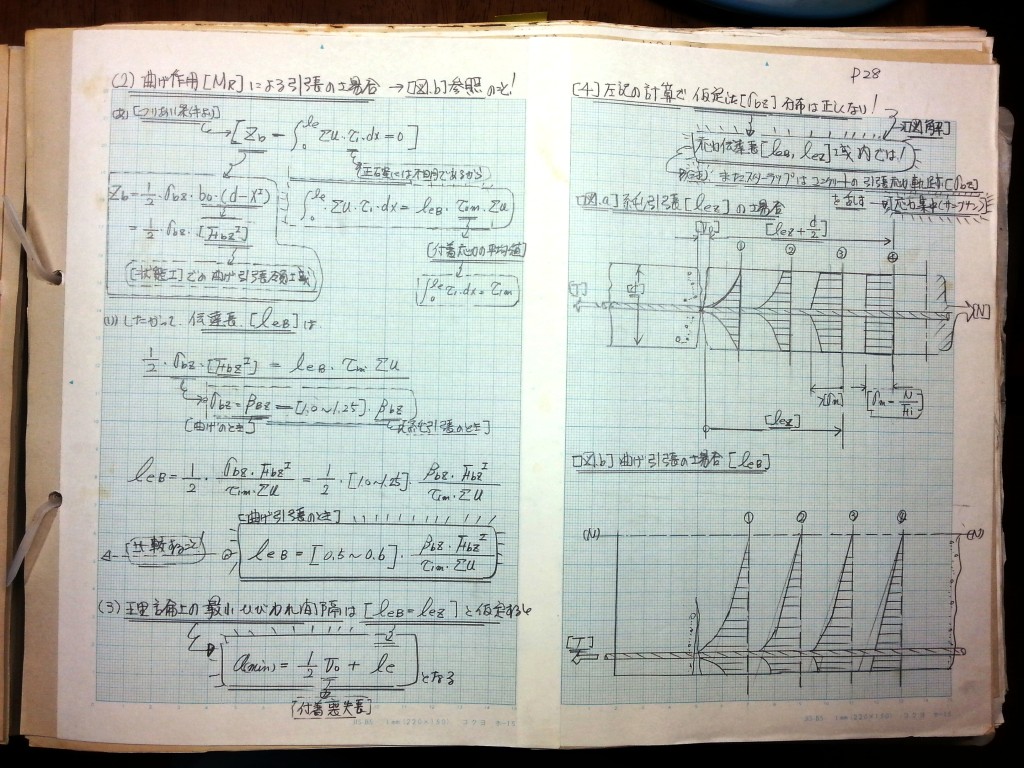 (2) 曲げ作用[MR]による引張の場合 → [図.b]参照のこと!
[つりあい条件より]
[Zb − ∫₀^le ΣU・τ₁・dx = 0]
Zb = 1/2・σbz・b₀・(d−x²)
= 1/2・σbz・[Fbz²]
[状態I]での曲げ引張領域
∫₀^le ΣU・τ₁・dx = leB・τ₁m・ΣU
[付着応力の平均値]
∫₀^le τ₁・dx = τ₁m
したがって、伝達長[leB]は、
1/2・σbz・[Fbz²] = leB・τ₁m・ΣU
σbz = βBz = [1.0~1.25]・βbz
[曲げのとき]
[純引張のとき]
leB = 1/2・σbz・Fbz²/τ₁m・ΣU = 1/2・[1.0~1.25]・βbz・Fbz²/τ₁m・ΣU
[曲げ引張のとき]
leB = [0.5~0.6]・βbz・Fbz²/τ₁m・ΣU
(3) 理論上の最小ひびわれ間隔は[leB=leZ]と仮定すると
a(min) = 1/2 V₀ + le となる
[付着喪失長]
P28
[4] 左記の計算で仮定法[σbz]分布は正しくない!
[図解]
応力伝達長[leB, leZ]域内では!
[図.a] 純引張[leZ]の場合
[V₀]
[leZ + d/2]
① ② ③ ④
[d]
[N]
[σm = N/Fi]
[leZ]
[図.b] 曲げ引張の場合[leB]
① ② ③ ④
(N)
(N)
[T]